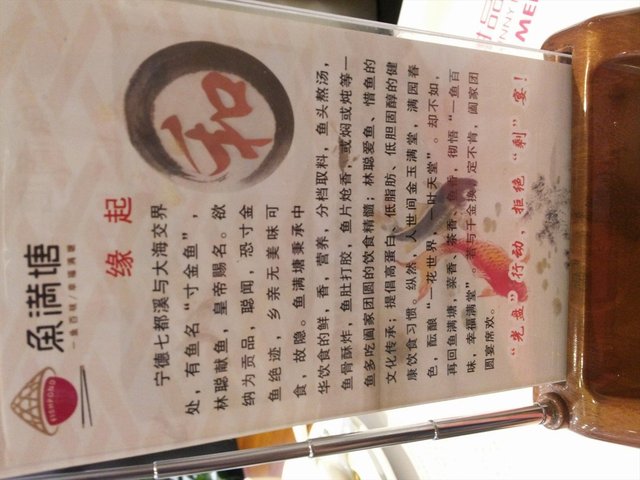 魚满塘
一鱼百味/幸福满塘
FISHPOND
和
缘起
宁德七都溪与大海交界
处，有鱼名“寸金鱼”，
林聪献鱼，皇帝赐名。欲
纳为贡品，聪闻，恐寸金
鱼绝迹，乡亲无美味可
食，故隐。鱼满塘秉承中
华饮食的鲜，香，营养，分档取料，鱼头熬汤，
鱼骨酥炸，鱼肚打胶，鱼片炝香，或焖或炖等一
鱼多吃阖家团圆的饮食精髓；林聪爱鱼、惜鱼的
文化传承；提倡高蛋白、低脂肪、低胆固醇的健
康饮食习惯。纵然，人世间金玉满堂，满园春
色，酝酿“一花世界，一叶天堂”。却不如，
再回鱼满塘，菜香、茶香、鱼香，彻悟“一鱼百
味，幸福满堂”。若与千金换，定不肯，阖家团
圆宴席欢。
“光盘”行动，拒绝“剩”宴！